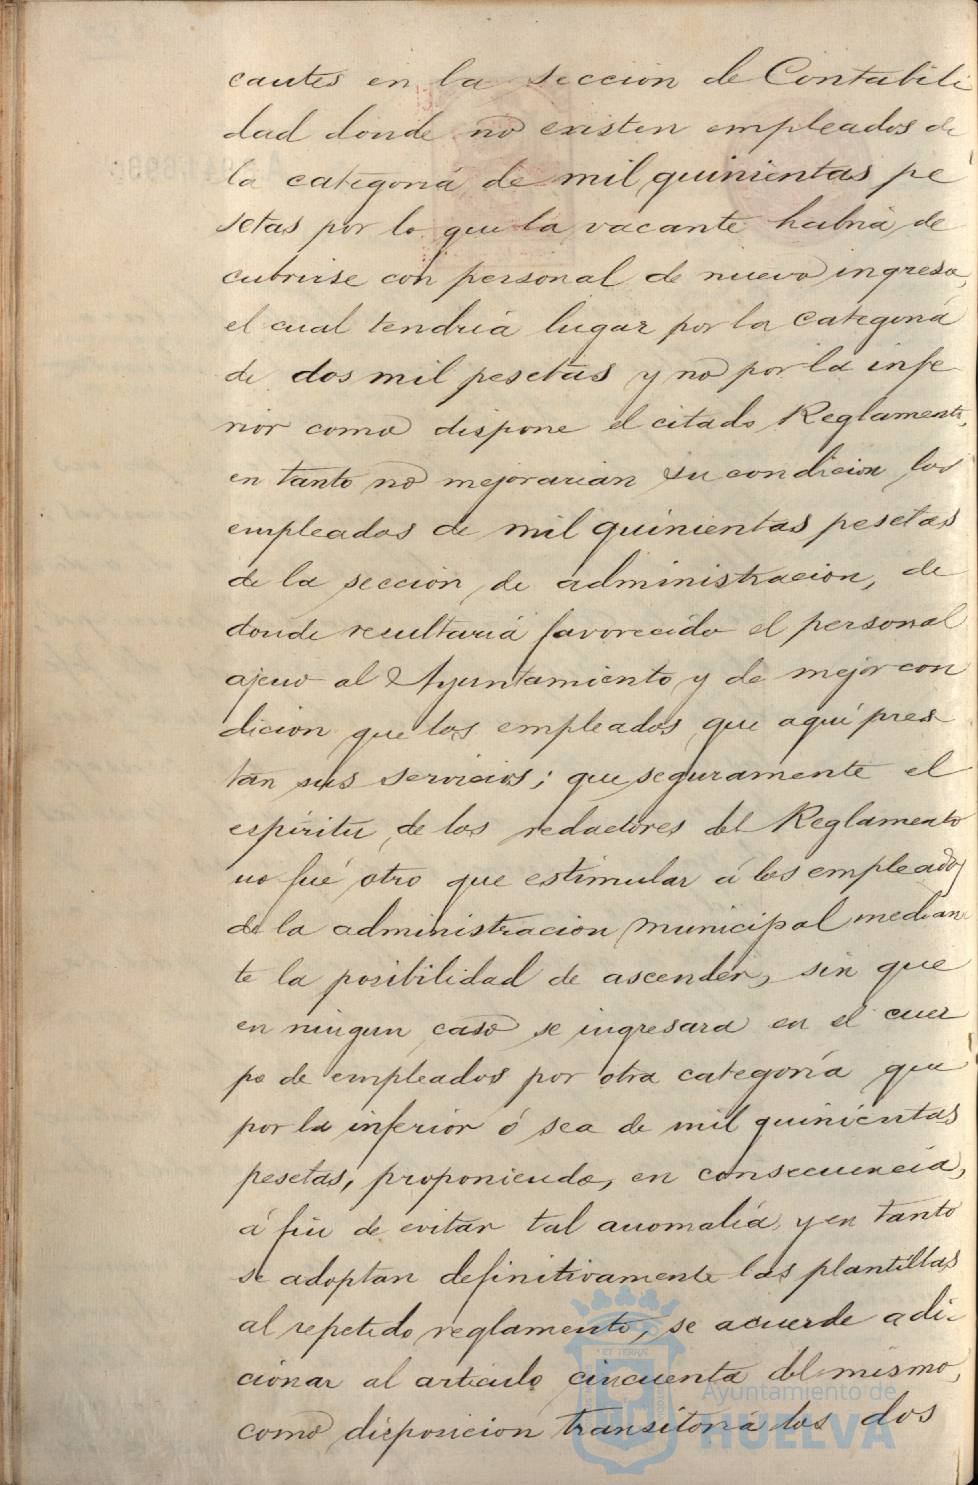 cantes en la sección de Contabili
dad donde no existen empleados de
la categoria de mil quinientas pe
setas por lo que la vacante habria de
cubrirse con personal de nuevo ingreso,
el cual tendria lugar por la categoria
de dos mil pesetas y no por la infe
rior como dispone el citado Reglamento,
en tanto no mejorarian su condicion los
empleados de mil quinientas pesetas
de la sección de administracion, de
donde resultaria favorecido el personal
ajeno al Ayuntamiento y de mejor con
dicion que los empleados que aquí pres
tan sus servicios; que seguramente el
espíritu de los redactores del Reglamento
no fué otro que estimular á los empleados
de la administracion municipal median
te la posibilidad de ascender, sin que
en ningun caso se ingresara en el cuer
po de empleados por otra categoría que
por la inferior ó sea de mil quinientas
pesetas, proponiendo, en consecuencia,
á fin de evitar tal anomalía y en tanto
se adoptan definitivamente las plantillas
al repetido reglamento, se acuerde adi-
cionar al articulo cincuenta del mismo,
como disposicion transitoria los dos
Ayuntamiento de
HUELVA